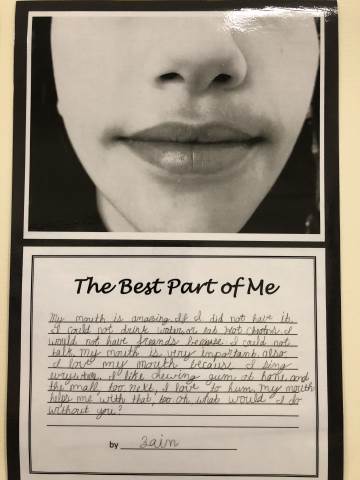 The Best Part of Me
My mouth is amazing. If I did not have it.
I could not drink water or eat Hot cheetos I
would not have freands because I could not
talk. My mouth is very important. also
I love my mouth because I sing
I like chewing gum at home and
the mall too next, I love to hum. My mouth
helps me with that, too. oh what would I do
without you?
by Zain